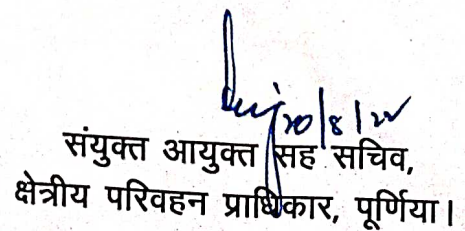 20/8/22
संयुक्त आयुक्त सह सचिव,
क्षेत्रीय परिवहन प्राधिकार, पूर्णिया।